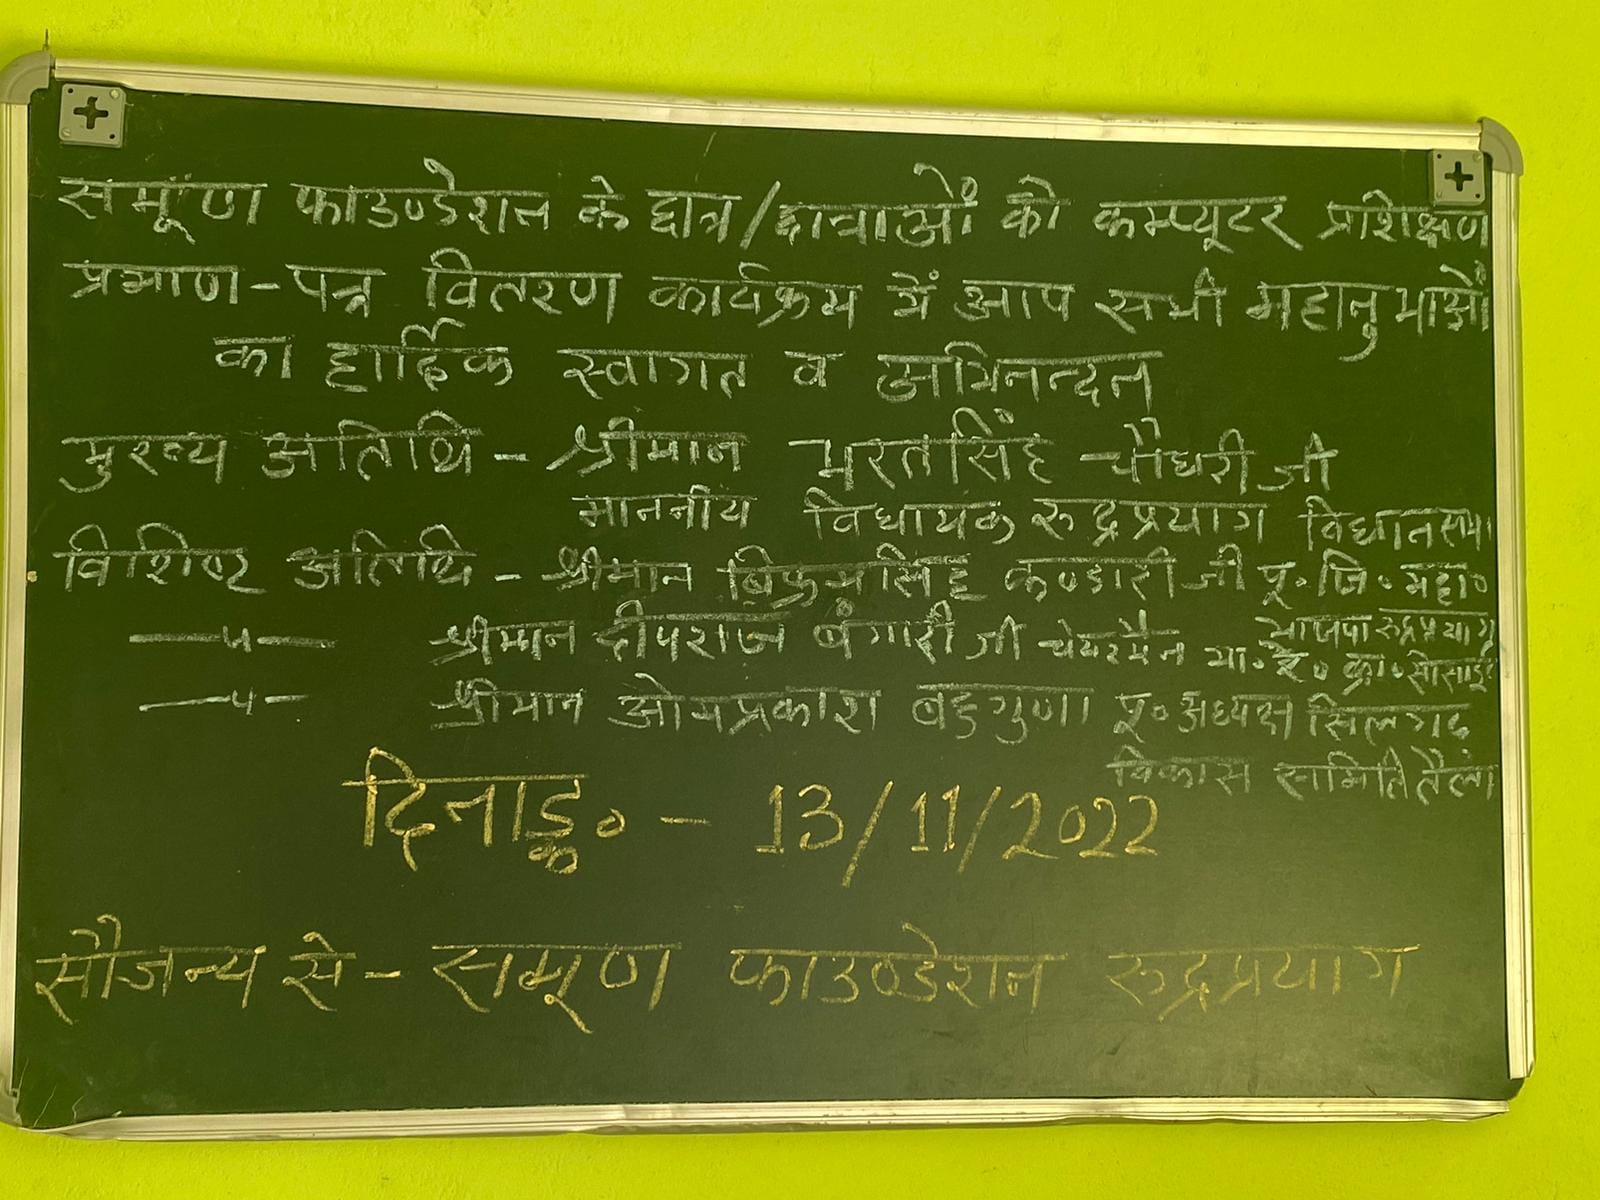 समूण फाउण्डेशन के छात्र/छात्राओं को कम्प्यूटर प्रशिक्षण
प्रमाण-पत्र वितरण कार्यक्रम में आप सभी महानुभाओं
का हार्दिक स्वागत व अभिनन्दन
मुख्य अतिथि - श्रीमान भरतसिंह चौधरी जी
माननीय विधायक रुद्रप्रयाग विधानसभा
विशिष्ट अतिथि - श्रीमान बिक्रमसिंह कण्डारी जी पू॰ जि॰ महा॰
भाजपा रुद्रप्रयाग
—〃— श्रीमान दीपराज बंगारी जी चेयरमैन मा॰ रे॰ क्रा॰ सोसाइटी
—〃— श्रीमान ओमप्रकाश बहुगुणा पू॰ अध्यक्ष सिलगढ
विकास समिति तैला
दिनाङ्क॰ - 13/11/2022
सौजन्य से - समूण फाउण्डेशन रुद्रप्रयाग